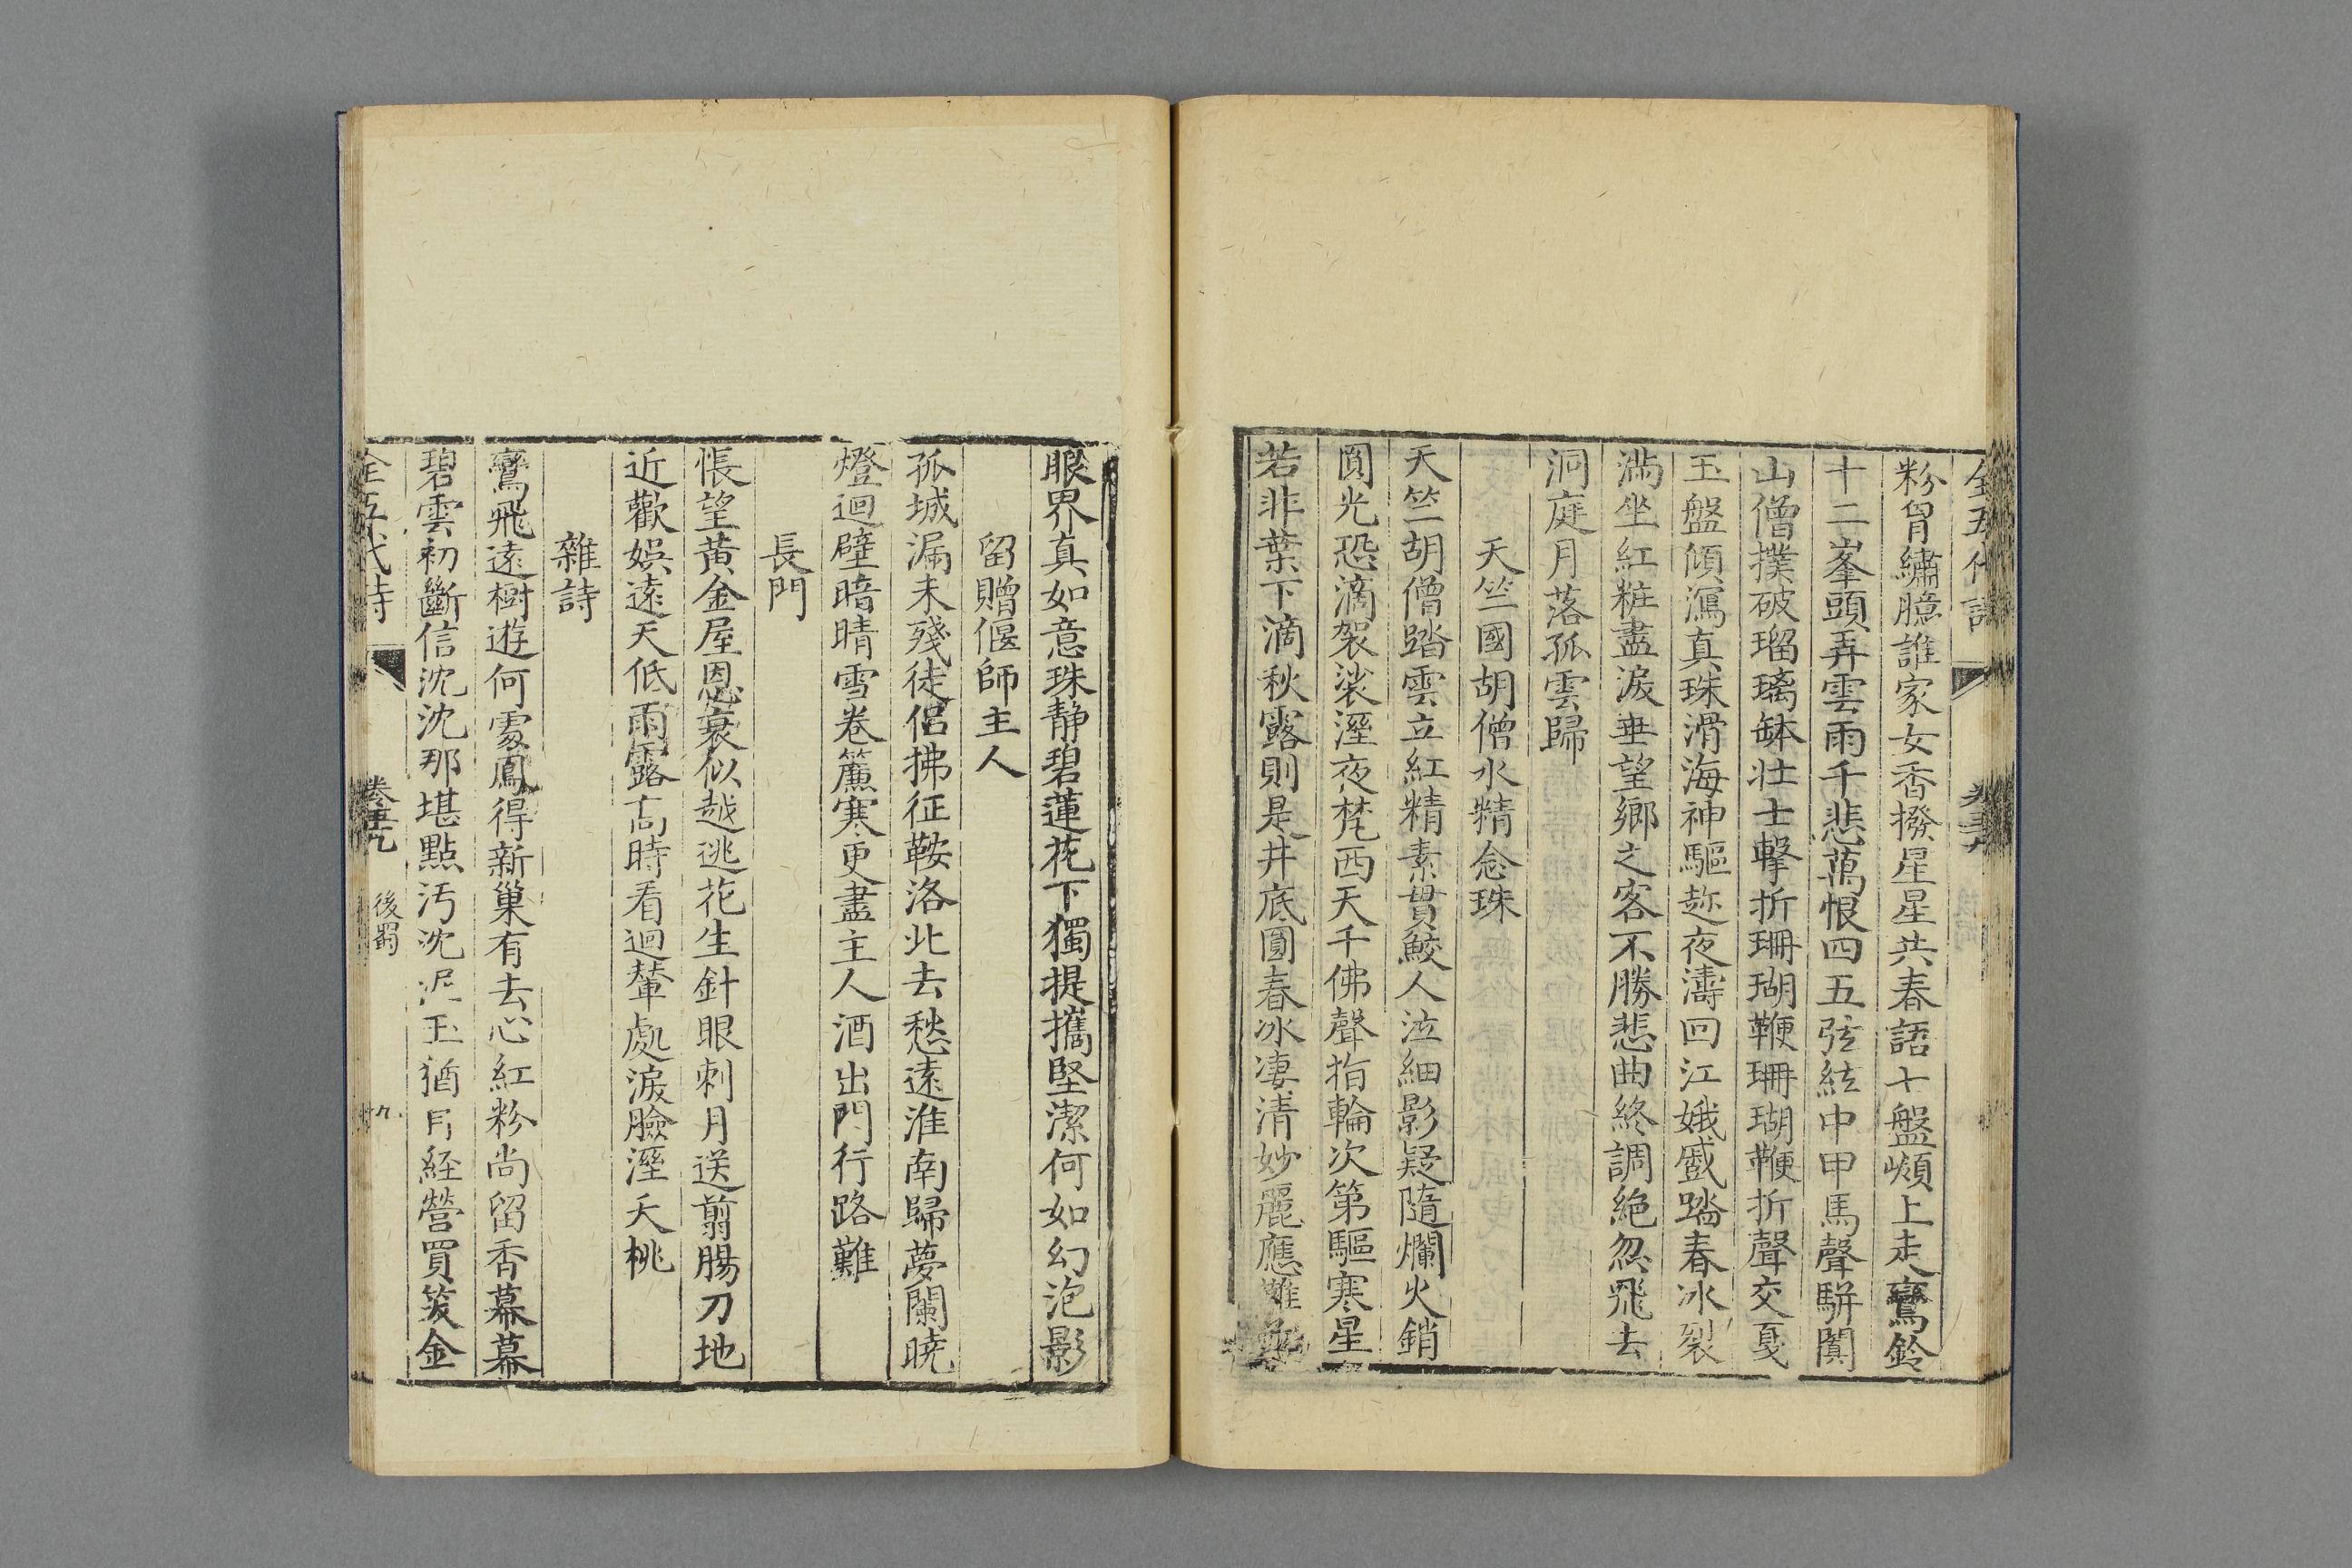 全五代詩
粉胷繡臆誰家女香撥星星共春語七盤嶺上走鸞鈴
十二峯頭弄雲雨千悲萬恨四五弦絃中甲馬聲駢闐
山僧撲破瑠璃缽壮士擊折珊瑚鞭珊瑚鞭折聲交戛
玉盤傾瀉真珠滑海神驅趂夜濤回江娥蹙踏春冰裂
滿坐紅粧盡淚垂望鄉之客不勝悲曲終調絕忽飛去
洞庭月落孤雲歸
天竺國胡僧水精念珠
天竺胡僧踏雲立紅精素貫鮫人泣細影疑隨爛火銷
圓光恐滴袈裟溼夜梵西天千佛聲指輪次第驅寒星
若非葉下滴秋露則是井底圓春冰凄清妙麗應難
眼界真如意珠靜碧蓮花下獨提攜堅潔何如幻泡影
留贈偃師主人
孤城漏未殘徒侶拂征鞍洛北去愁遠淮南歸夢闌曉
燈迴壁暗晴雪卷簾寒更盡主人酒出門行路難
長門
悵望黃金屋恩衰似越逃花生針眼刺月送翦腸刀地
近歡娛遠天低雨露高時看迴輦處淚臉溼夭桃
雜詩
鸞飛遠樹遊何處鳳得新巢有去心紅粉尚留香幕幕
碧雲初斷信沈沈那堪點汚沈泥玉猶有經營買笑金
全五代詩 卷五九 後蜀 十九